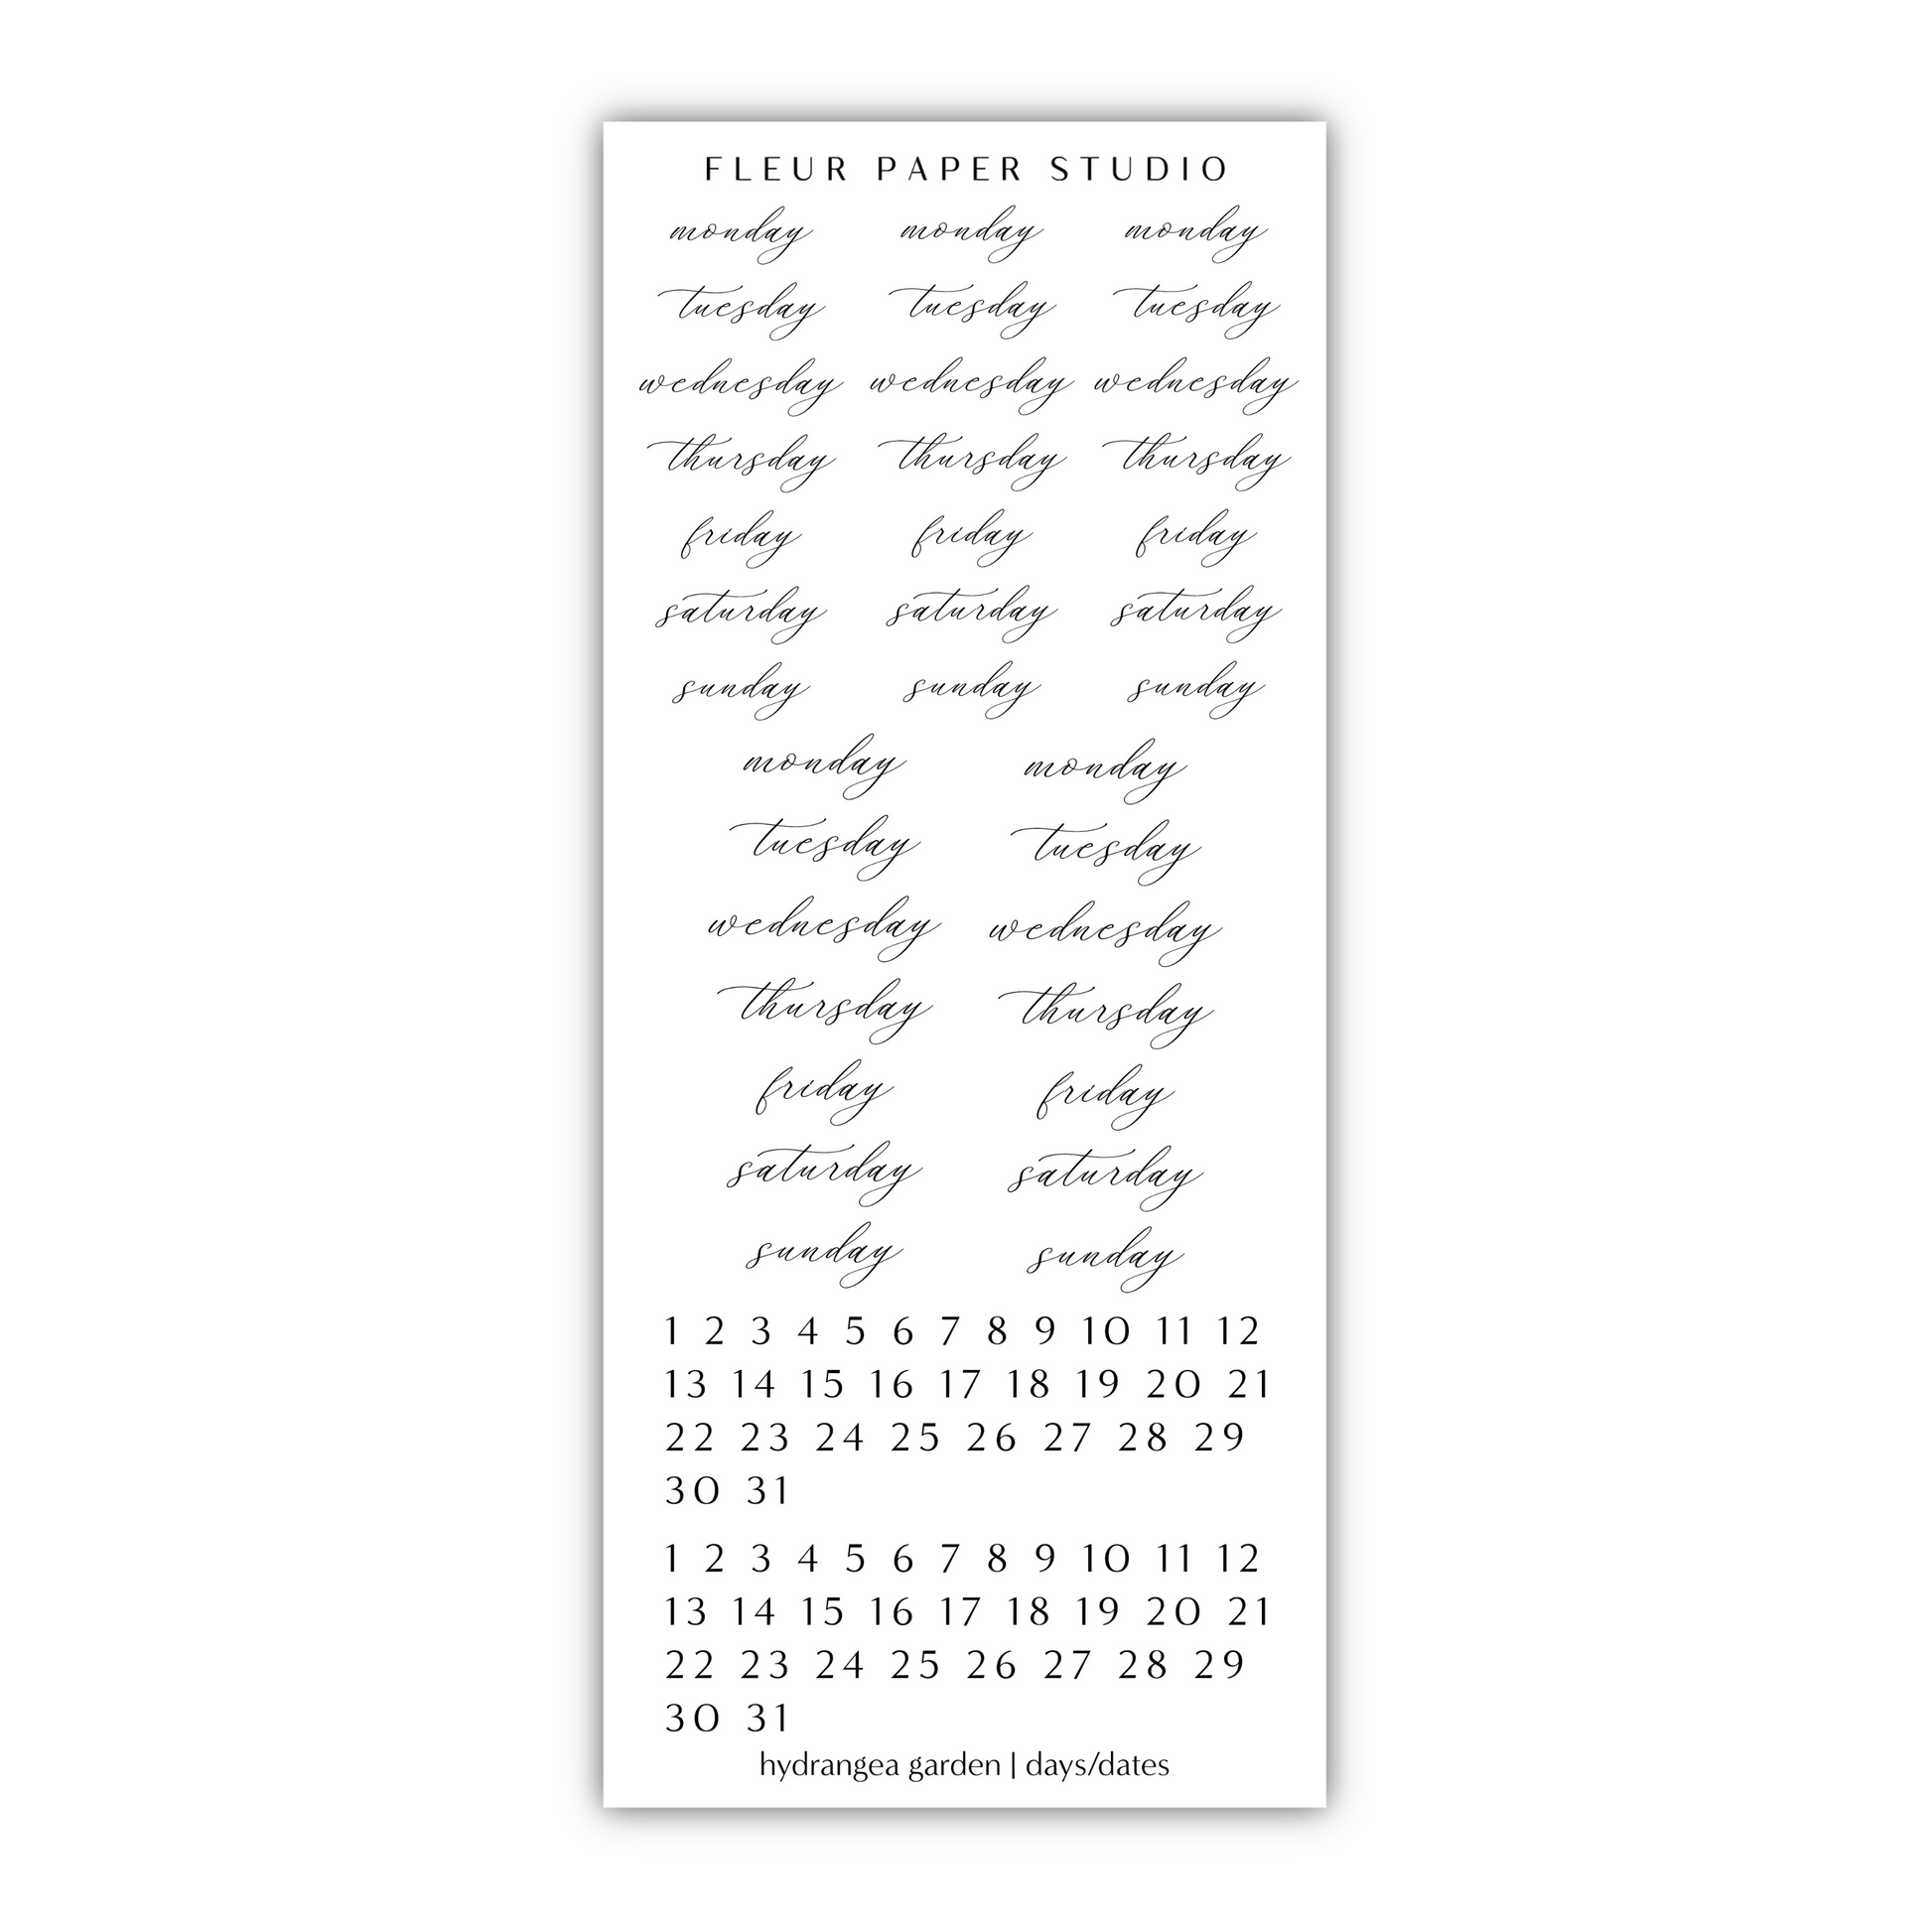 FLEUR PAPER STUDIO
monday monday monday
tuesday tuesday tuesday
wednesday wednesday wednesday
thursday thursday thursday
friday friday friday
saturday saturday saturday
sunday sunday sunday
monday monday
tuesday tuesday
wednesday wednesday
thursday thursday
friday friday
saturday saturday
sunday sunday
1 2 3 4 5 6 7 8 9 10 11 12
13 14 15 16 17 18 19 20 21
22 23 24 25 26 27 28 29
30 31
1 2 3 4 5 6 7 8 9 10 11 12
13 14 15 16 17 18 19 20 21
22 23 24 25 26 27 28 29
30 31
hydrangea garden | days/dates